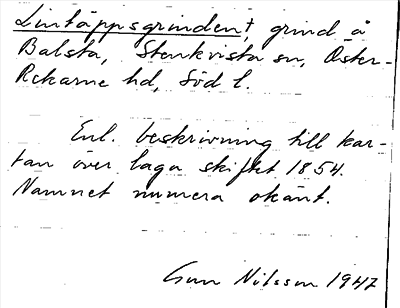 Lintäppsgrinden†, grind å
Balsta, Stenkvista sn, Öster-
Rekarne hd, Söd l.
Enl. beskrivning till kar-
tan över laga skiftet 1854.
Namnet numera okänt.
Gun Nilsson 1947